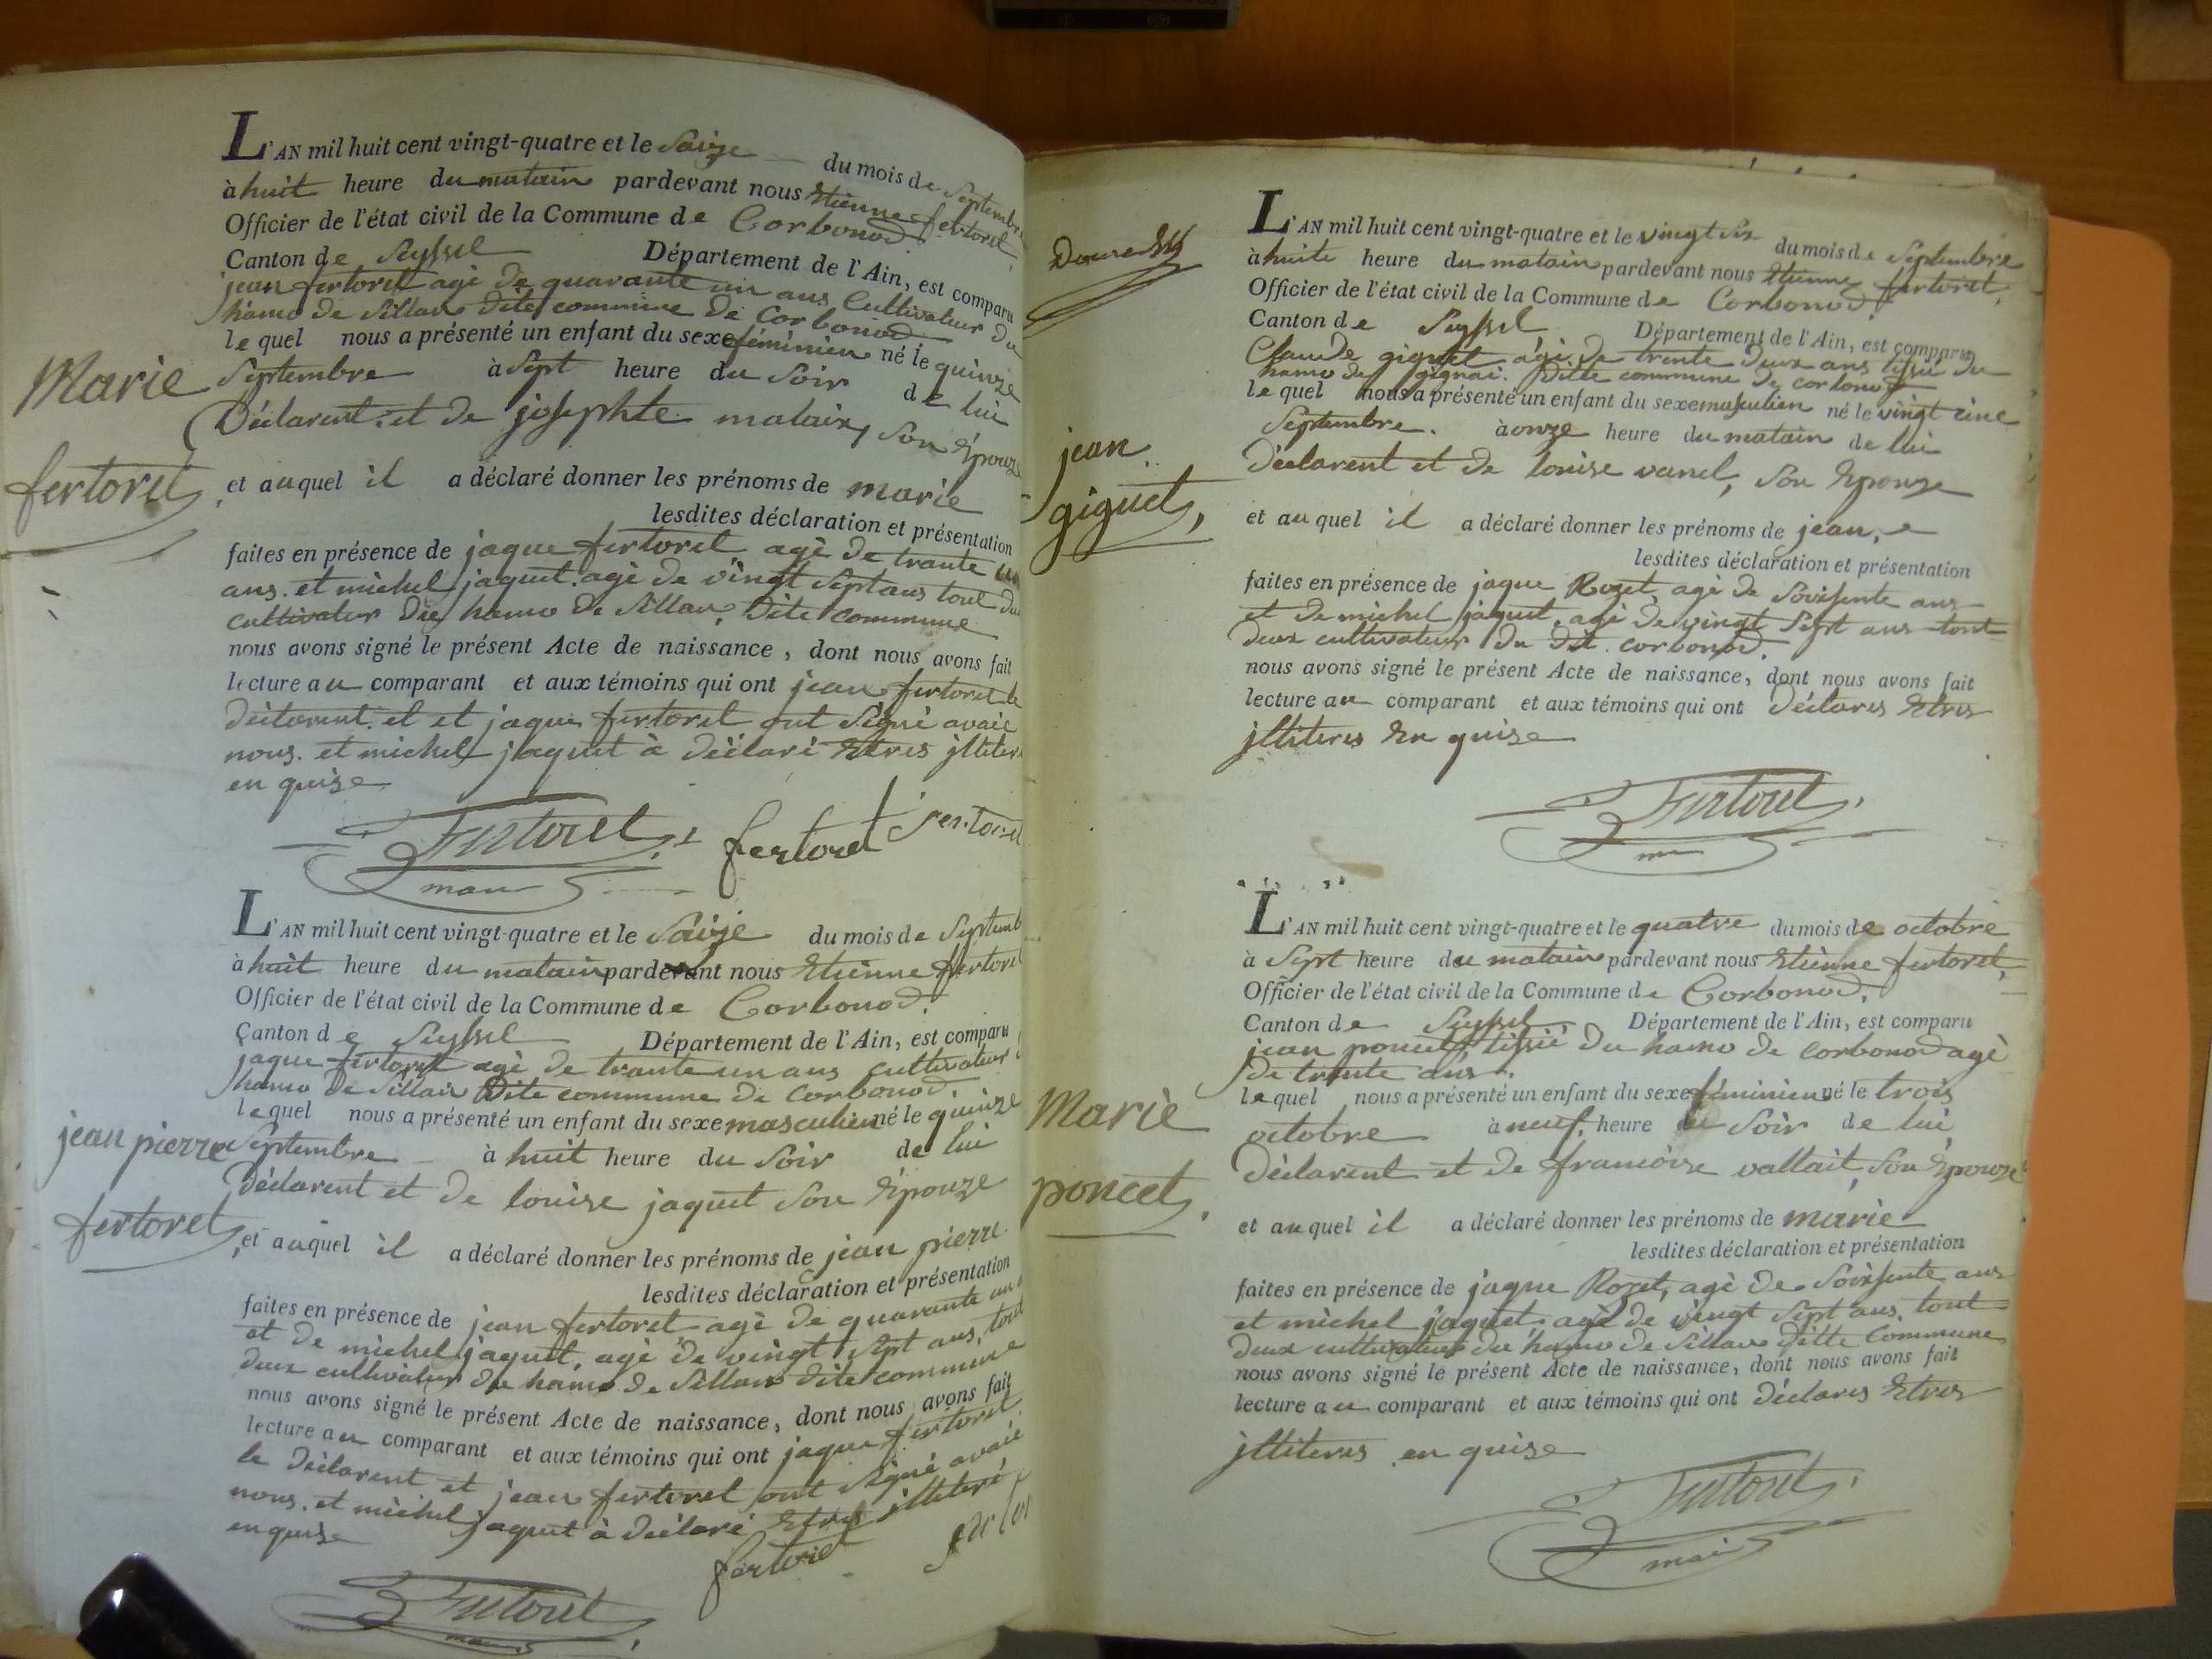 L'AN mil huit cent vingt-quatre et le Saize du mois de Septembre
à huit heure du matain pardevant nous Etienne fertoret,
Officier de l'état civil de la Commune de Corbonod.
Canton de Seyssel Département de l'Ain, est comparu
jean fertoret agé de quarante un ans Cultivateur du
hamo de Sillan dite commune de Corbonod
le quel nous a présenté un enfant du sexe féminien né le quinze
Septembre à Sept heure du Soir de lui
Déclarent et de josephte malain, Son Epouze
Marie
fertoret
et auquel il a déclaré donner les prénoms de marie
lesdites déclaration et présentation
faites en présence de jaque fertoret agé de trante un
ans. et michel jaquet. agé de vingt Sept ans tout du
cultivateur Du hamo de Sillan. Dite commune
nous avons signé le présent Acte de naissance, dont nous avons fait
lecture au comparant et aux témoins qui ont jean fertoret le
déclarent et et jaque fertoret ont Signé avaic
nous. et michel jaquet à déclaré Etres jlliter
en quise
Fertoret fertoret fertoret
L'AN mil huit cent vingt-quatre et le Saize du mois de Septemb
à huit heure du matain pardevant nous Etienne fertoret
Officier de l'état civil de la Commune de Corbonod.
Canton de Seyssel Département de l'Ain, est comparu
jaque fertoret agé de trante un ans cultivateur
hamo de Sillan Dite commune de Corbonod
le quel nous a présenté un enfant du sexe masculien né le quinze
Septembre à huit heure du Soir de lui
Déclarent et de louise jaquet Son Epouze
jean pierre
fertoret
et auquel il a déclaré donner les prénoms de jean pierre.
lesdites déclaration et présentation
faites en présence de jean fertoret agé de quarante un
et de michel jaquet, agé de vingt Sept ans, tout
deux cultivateur du hamo de Sillan dite commune
nous avons signé le présent Acte de naissance, dont nous avons fait
lecture au comparant et aux témoins qui ont jaque fertoret
le déclarent et jean fertoret ont Signé avaic
nous. et michel jaquet à déclaré Etres jlliteré
en quise
fertoret
Fertoret
L'AN mil huit cent vingt-quatre et le vingt Six du mois de Septembre
à huite heure du matain pardevant nous Etienne fertoret,
Officier de l'état civil de la Commune de Corbonod.
Canton de Seyssel Département de l'Ain, est comparu
Claude giguet agé de trente deux ans tissié du
hamo de gignai. Ditte commune de corbonod
le quel nous a présenté un enfant du sexe masculien né le vingt cinc
Septembre. à onze heure du matain de lui
Déclarent et de louise vanel, Son Epouze
jean
giguet,
et au quel il a déclaré donner les prénoms de jean,
lesdites déclaration et présentation
faites en présence de jaque Rozet, agé de Soissente ans
et de michel jaquet, agé de vingt Sept ans tout
deux cultivateur du dit. corbonod.
nous avons signé le présent Acte de naissance, dont nous avons fait
lecture au comparant et aux témoins qui ont Déclares Etres
jlliteres En quise
Fertoret
L'AN mil huit cent vingt-quatre et le quatre du mois de octobre
à Sept heure du matain pardevant nous Etienne fertoret,
Officier de l'état civil de la Commune de Corbonod.
Canton de Seyssel Département de l'Ain, est comparu
jean poncet, tissié du hamo de corbonod agé
de trante ans.
le quel nous a présenté un enfant du sexe féminien né le trois
octobre à neuf. heure du Soir de lui
Déclarent et de framoise vallait, Son Epouze
Marie
poncet,
et au quel il a déclaré donner les prénoms de marie
lesdites déclaration et présentation
faites en présence de jaque Rozet, agé de Soissente ans
et michel jaquet, agé de vingt Sept ans. tout
deux cultivateur du hamo de Sillan ditte Commune
nous avons signé le présent Acte de naissance, dont nous avons fait
lecture au comparant et aux témoins qui ont déclares Etres
jlliteres en quise
Fertoret
maire